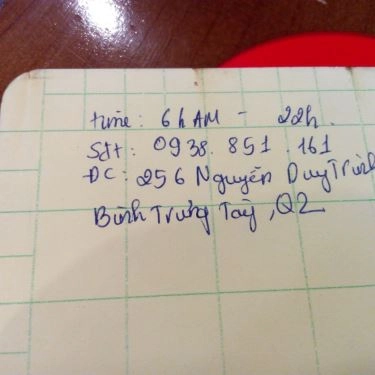 time: 6h AM - 22h.
Sđt: 0938.851.161
ĐC: 256 Nguyễn Duy Trinh
Bình Trưng Tây, Q2